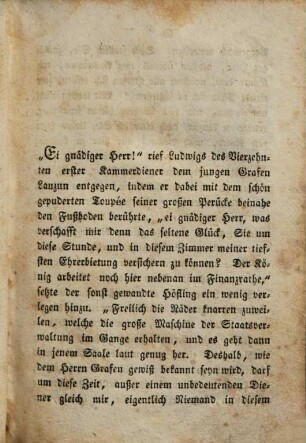 „Ei gnädiger Herr!“ rief Ludwigs des Vierzehn-
ten erster Kammerdiener dem jungen Grafen
Lauzun entgegen, indem er dabei mit dem schön
gepuderten Toupée seiner großen Perücke beinahe
den Fußboden berührte, „ei gnädiger Herr, was
verschafft mir denn das seltene Glück, Sie um
diese Stunde, und in diesem Zimmer meiner tief-
sten Ehrerbietung versichern zu können? Der Kö-
nig arbeitet noch hier nebenan im Finanzrathe,“
setzte der sonst gewandte Höfling ein wenig ver-
legen hinzu. „Freilich die Räder knarren zuwei-
len, welche die große Maschine der Staatsver-
waltung im Gange erhalten, und es geht dann
in jenem Saale laut genug her. Deshalb, wie
dem Herrn Grafen gewiß bekannt seyn wird, darf
um diese Zeit, außer einem unbedeutenden Die-
ner gleich mir, eigentlich Niemand in diesem